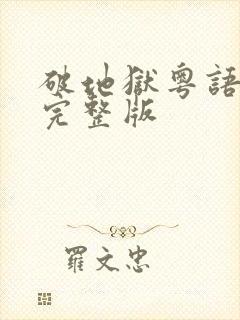 破地獄粵語
完整版
羅文忠